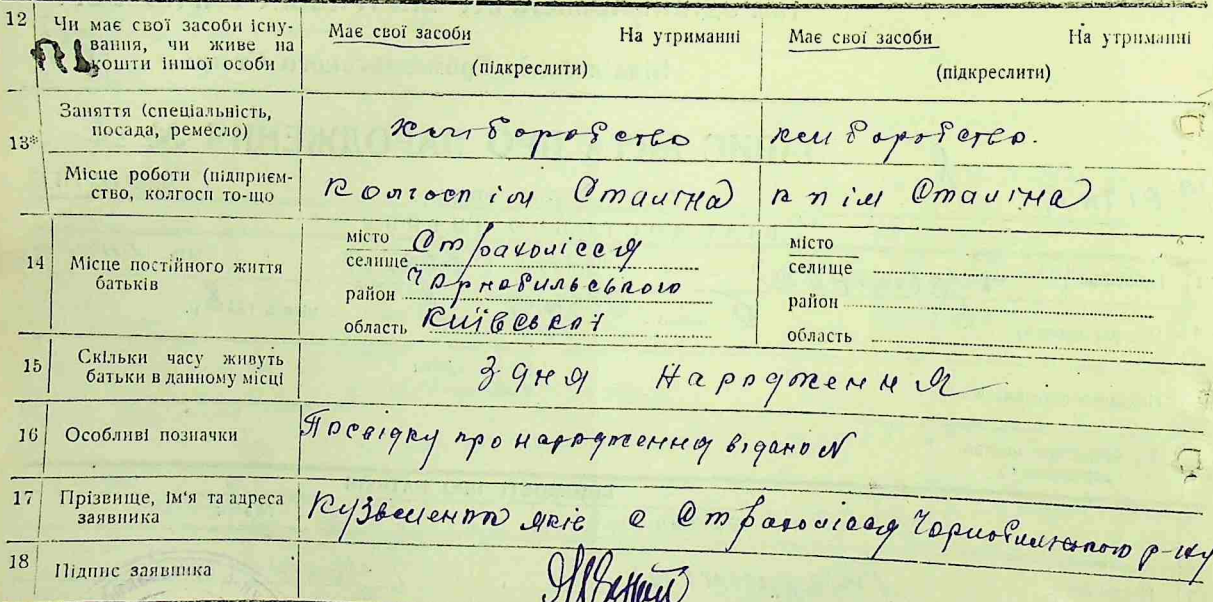 12 Чи має свої засоби існу-
вання, чи живе на
кошти іншої особи
Має свої засоби На утриманні Має свої засоби На утриманні
(підкреслити) (підкреслити)
13* Заняття (спеціальність,
посада, ремесло)
хлиборобство хлиборобство.
Місце роботи (підприєм-
ство, колгосп то-що
Колгосп ім Сталіна к п ім Сталіна
14 Місце постійного життя
батьків
місто
селище Страхолісся
район Чорнобильського
область Київської
місто
селище
район
область
15 Скільки часу живуть
батьки в данному місці
З дня народження
16 Особливі позначки
Посвідку про народження видано N
17 Прізвище, ім'я та адреса
заявника
Кузьменко с Страхолісся Чорнобильського р-ну
18 Підпис заявника